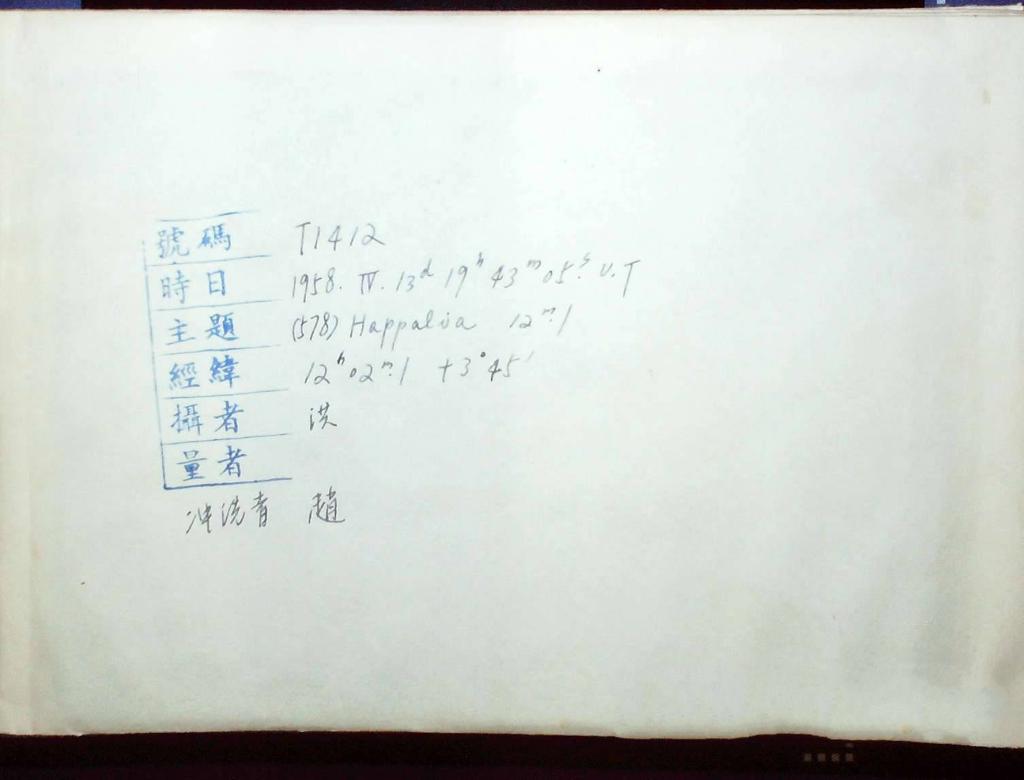 號碼 T1412
時日 1958. IV. 13ᵈ 19ʰ 43ᵐ 05ˢ. U.T
主題 (578) Happalia 12ᵐ.1
經緯 12ʰ02ᵐ.1 +3°45′
攝者 洪
量者
冲洗者 趙